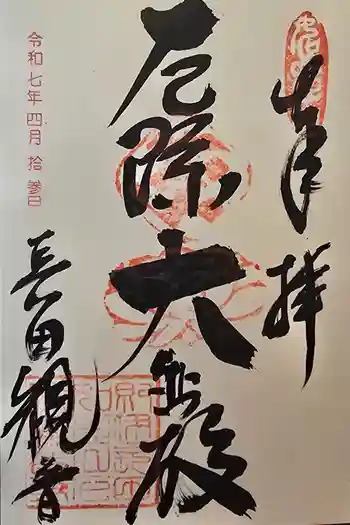 奉拝
厄除大悲殿
長田観音
令和七年四月拾參日